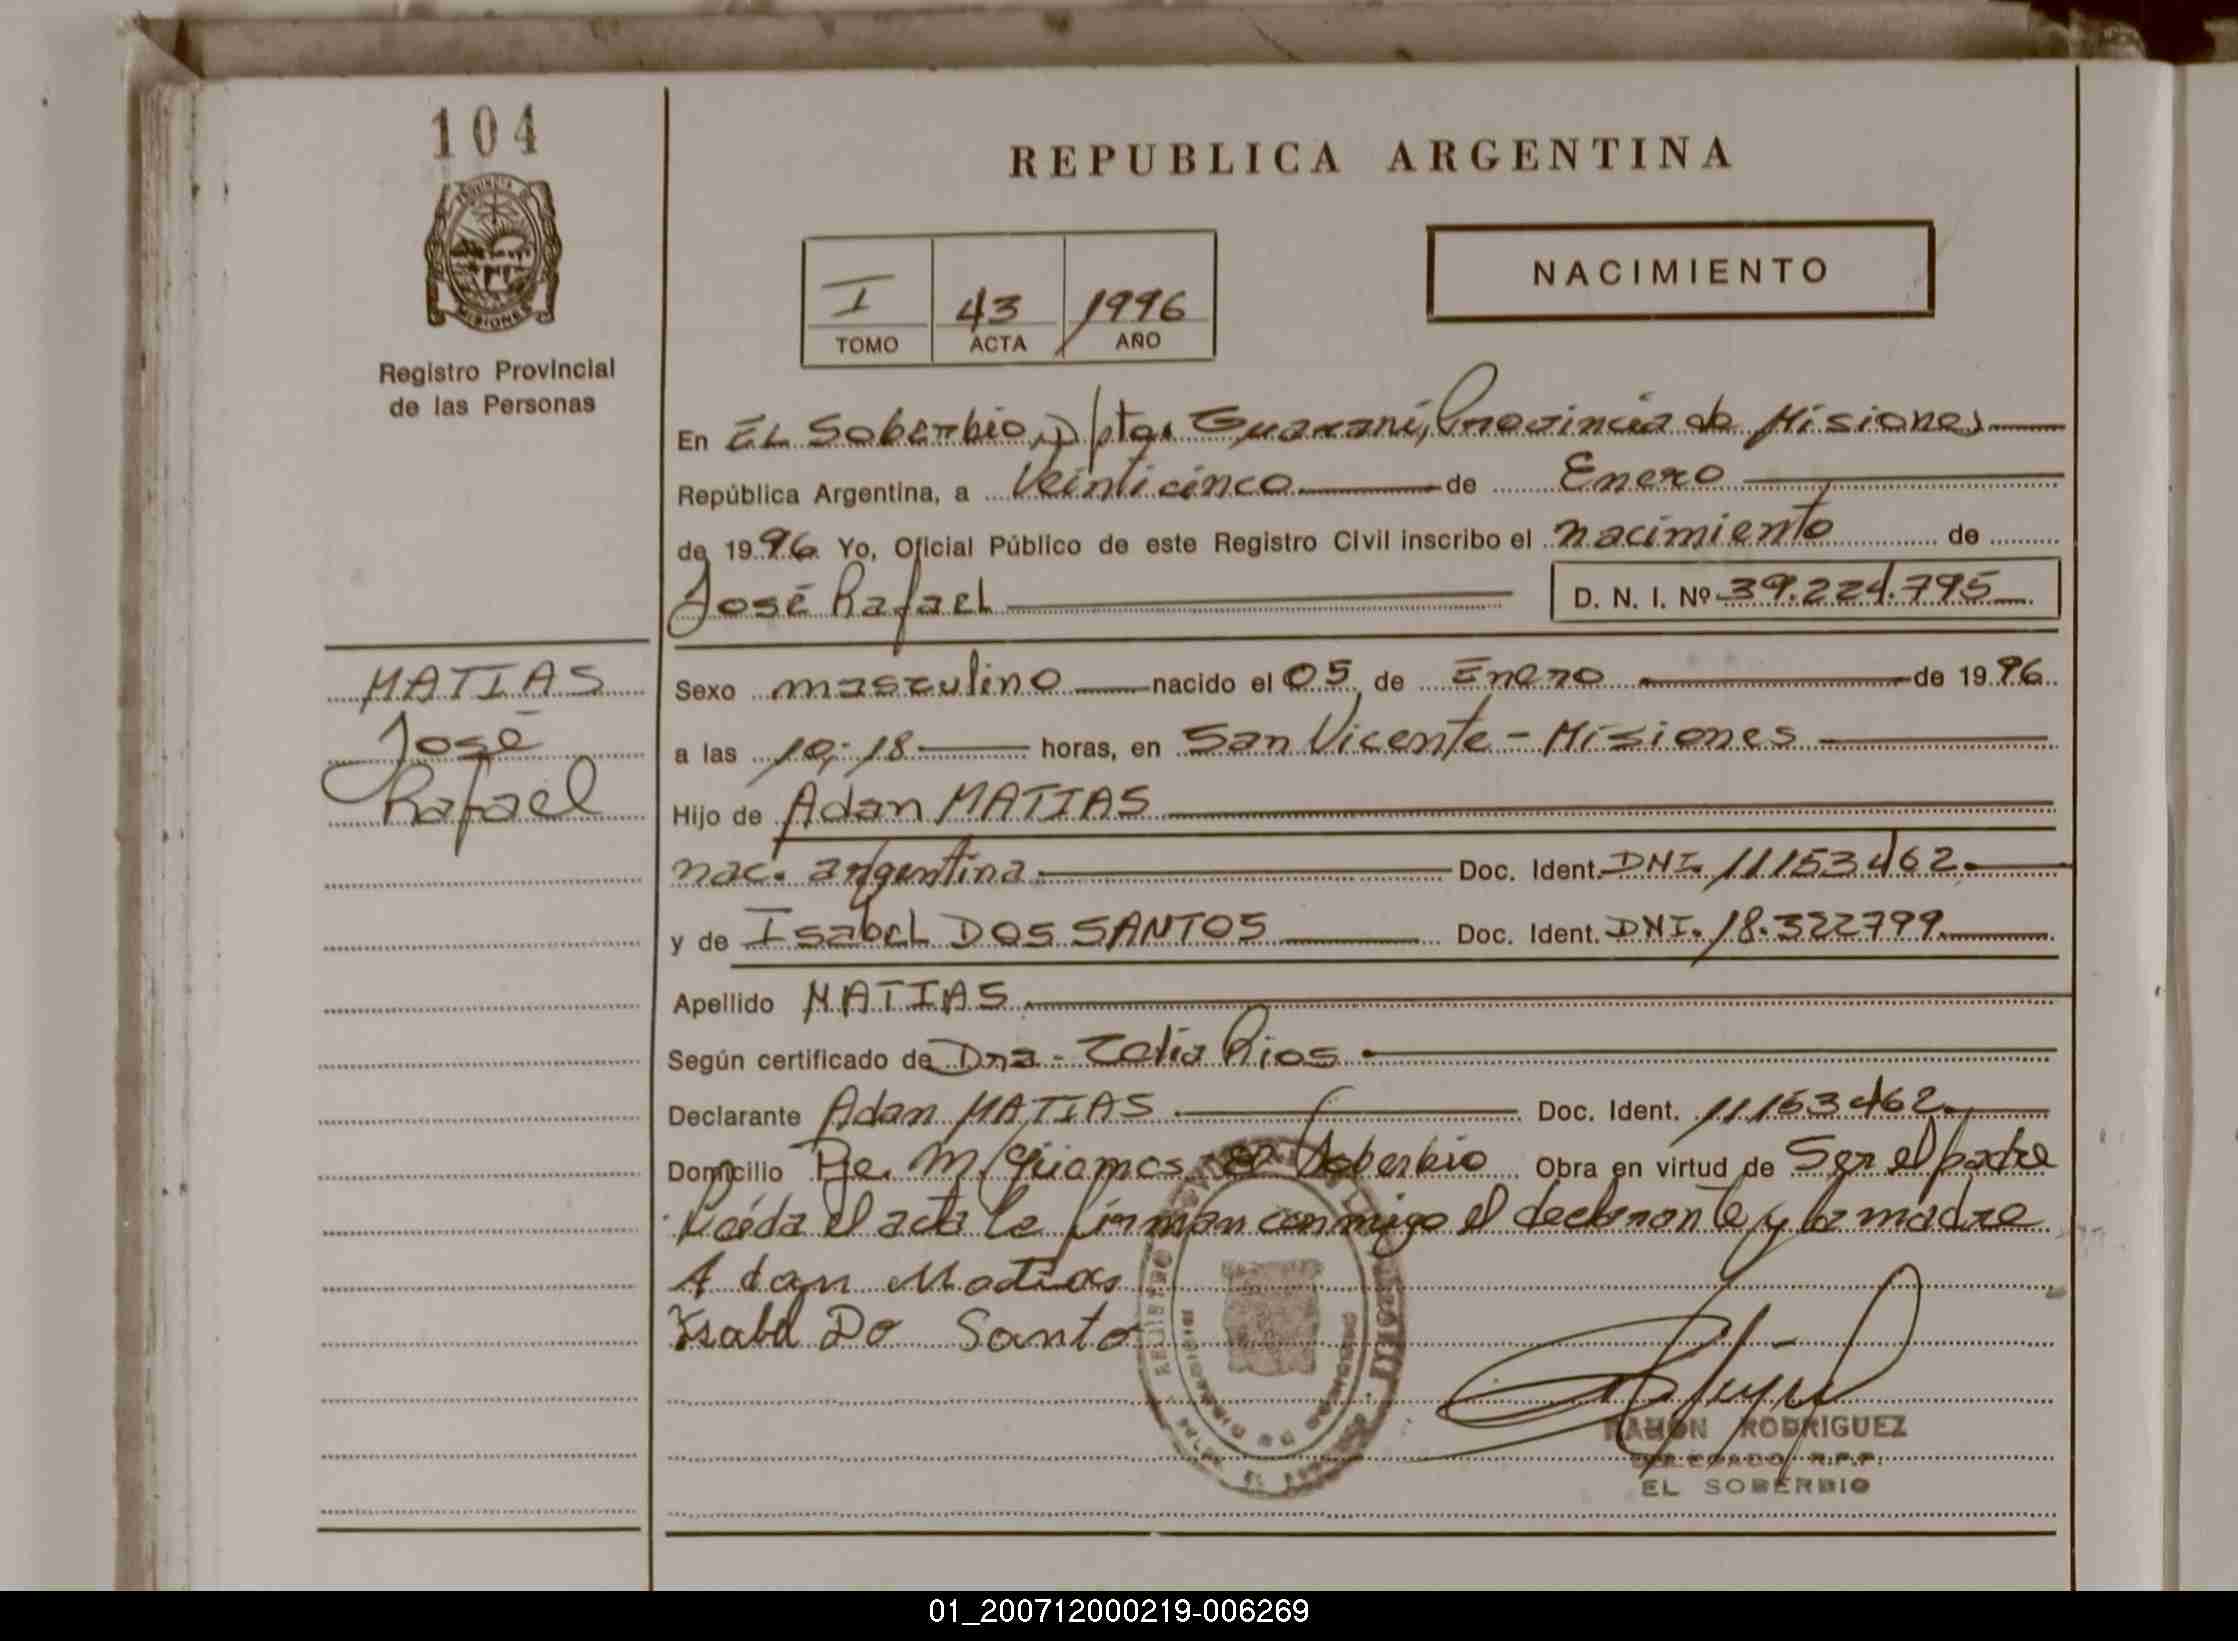 104
PROVINCIA DE
MISIONES
Registro Provincial
de las Personas
REPUBLICA ARGENTINA
I 43 1996
TOMO ACTA AÑO
NACIMIENTO
En El Soberbio, Dpto. Guaraní, Provincia de Misiones
República Argentina, a Veinticinco de Enero
de 1996 Yo, Oficial Público de este Registro Civil inscribo el nacimiento de
José Rafael D. N. I. Nº 39.224.795
MATIAS
José
Rafael
Sexo masculino nacido el 05 de Enero de 1996
a las 10,18 horas, en San Vicente - Misiones
Hijo de Adan MATIAS
nac. argentina Doc. Ident. DNI. 11153462
y de Isabel DOS SANTOS Doc. Ident. DNI. 18.322799
Apellido MATIAS
Según certificado de Dra - Rios
Declarante Adan MATIAS Doc. Ident. 11153462
Domicilio Pje. M. Güemes El Soberbio Obra en virtud de Ser el padre
Leída el acta la firman conmigo el declarante y la madre
Adan Matias
Isabel Do Santo
RAMON RODRIGUEZ
DELEGADO R.P.P.
EL SOBERBIO
01_200712000219-006269